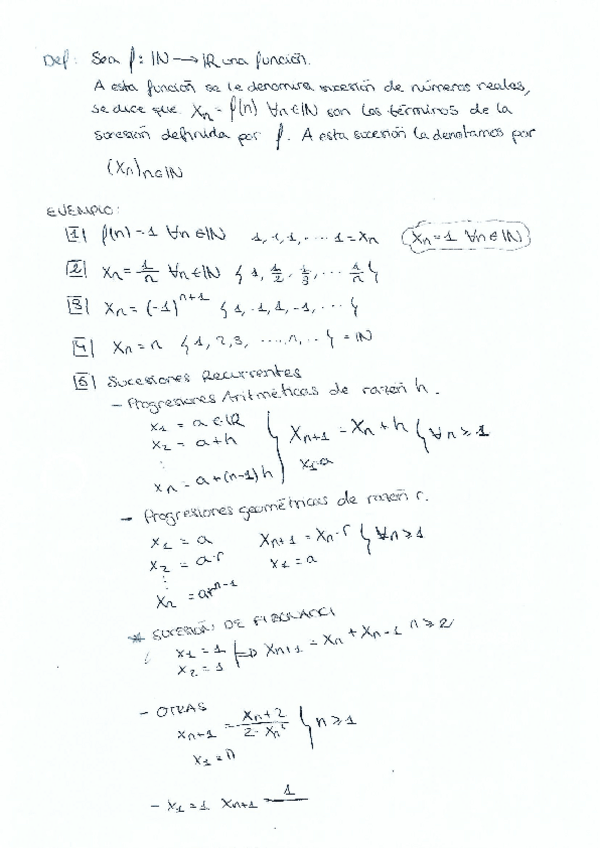 Def: Sea f: ℕ → ℝ una función.
A esta función se le denomina sucesión de números reales,
se dice que xₙ = f(n) ∀n∈ℕ son los términos de la
sucesión definida por f. A esta sucesión la denotamos por
(xₙ)n∈ℕ
EJEMPLO:
1| f(n)=1 ∀n∈ℕ 1,1,1,... 1=xₙ (xₙ=1 ∀n∈ℕ)
2| xₙ = 1/n ∀n∈ℕ {1, 1/2, 1/3, ... 1/n}
3| xₙ = (-1)ⁿ⁺¹ {1,-1,1,-1,...}
4| xₙ = n {1,2,3, ...,n,...} = ℕ
5| Sucesiones Recurrentes
- Progresiones Aritméticas de razón h.
x₁ = a ∈ ℝ
x₂ = a+h
xₙ₊₁ = xₙ + h } ∀n≥1
⋮
x₁=a
xₙ = a+(n-1)h
- Progresiones geométricas de razón r.
x₁ = a xₙ₊₁ = xₙ·r } ∀n≥1
x₂ = a·r x₁ = a
⋮
xₙ = arⁿ⁻¹
* SUCESIÓN DE FIBONACCI
x₁ = 1
x₂ = 1 } ⇒ xₙ₊₁ = xₙ + xₙ₋₁ n≥2
- OTRAS
xₙ₊₁ = xₙ+2 / 2·xₙ } n≥1
x₁ =
- x₁ = 1 xₙ₊₁ = 1/